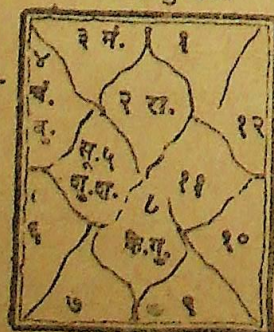 ३ मं. १
४
चं.
बु.
२ रा.
१२
सू.५
शु.श.
११
८
६
के.गु.
१०
७
९